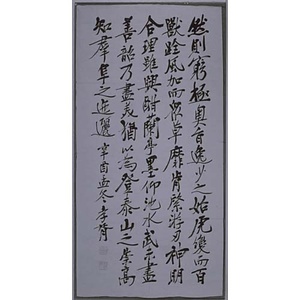 然則窮極奧旨逸少之始虎變而百
獸跧風加而眾草靡肯綮游刃神明
合理雖興酣蘭亭墨仰池水武未盡
善韶乃盡美猶以為登泰山之崇高
知羣阜之迤邐 辛酉孟冬 孝胥